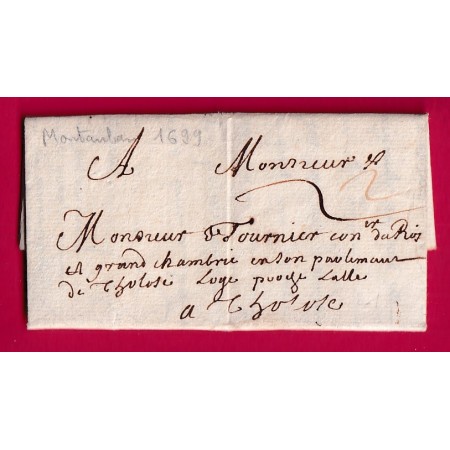 Montauban 1699
A Monsieur
2
Monsieur de Tournier con er du Roy
et grand chambrie en son parlement
de Tholose Logé proche Lalle
a Tholose